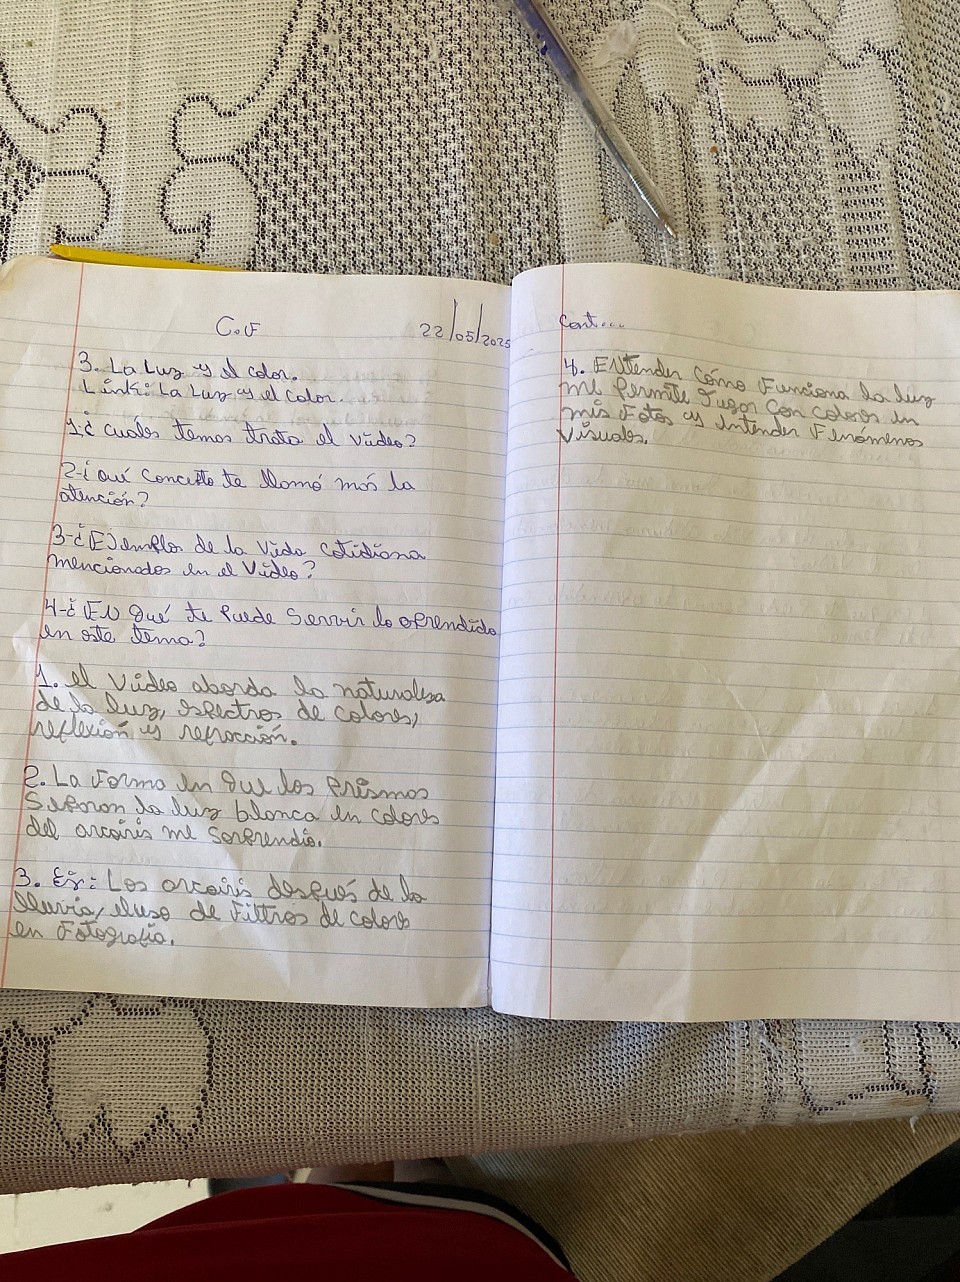 C.F
22/05/2025
3. La Luz y el color.
Link: La Luz y el color.
1-¿cuáles temas trata el video?
2-¿qué concepto te llamó más la
atención?
3-¿Ejemplos de la vida cotidiana
mencionados en el video?
4-¿EN qué te puede servir lo aprendido
en este tema?
1. el video aborda la naturaleza
de la luz, espectros de colores,
reflexión y refracción.
2. La forma en que los prismas
separan la luz blanca en colores
del arcoiris me sorprendió.
3. Ej: Los arcoiris después de la
lluvia, el uso de filtros de colores
en fotografía.
Cont...
4. ENtender cómo funciona la luz
me permite jugar con colores en
mis fotos y entender fenómenos
visuales.